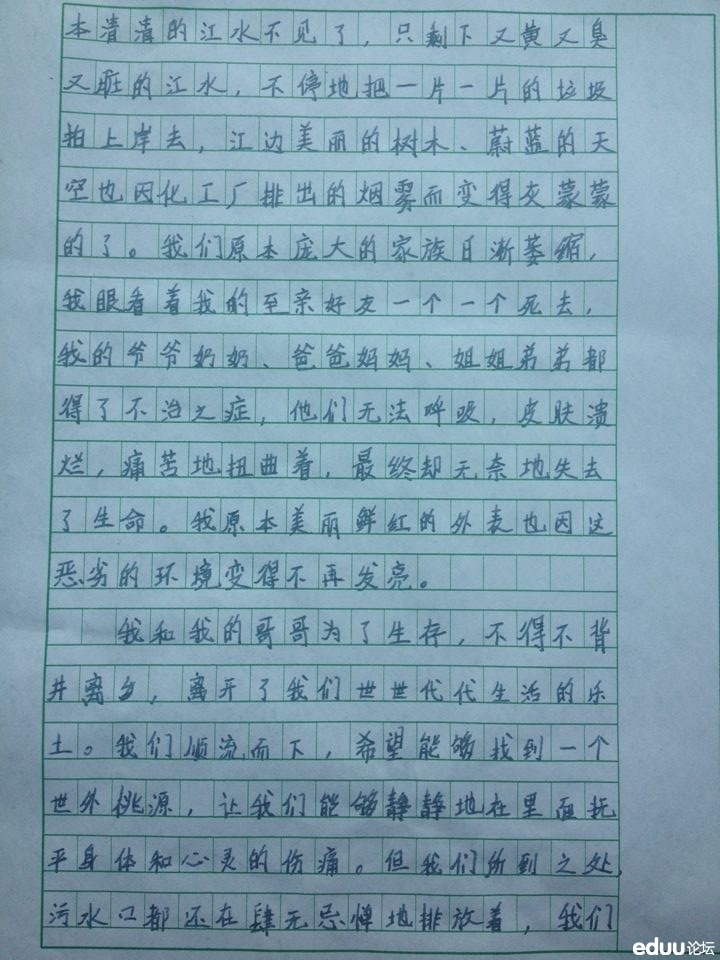 本清清的江水不见了，只剩下又黄又臭
又脏的江水，不停地把一片一片的垃圾
拍上岸去，江边美丽的树木、蔚蓝的天
空也因化工厂排出的烟雾而变得灰蒙蒙
的了。我们原本庞大的家族日渐萎缩，
我眼看着我的至亲好友一个一个死去，
我的爷爷奶奶、爸爸妈妈、姐姐弟弟都
得了不治之症，他们无法呼吸，皮肤溃
烂，痛苦地扭曲着，最终却无奈地失去
了生命。我原本美丽鲜红的外表也因这
恶劣的环境变得不再发亮。
我和我的哥哥为了生存，不得不背
井离乡，离开了我们世世代代生活的乐
土。我们顺流而下，希望能够找到一个
世外桃源，让我们能够静静地在里面抚
平身体和心灵的伤痛。但我们所到之处，
污水口都还在肆无忌惮地排放着，我们
eduu论坛